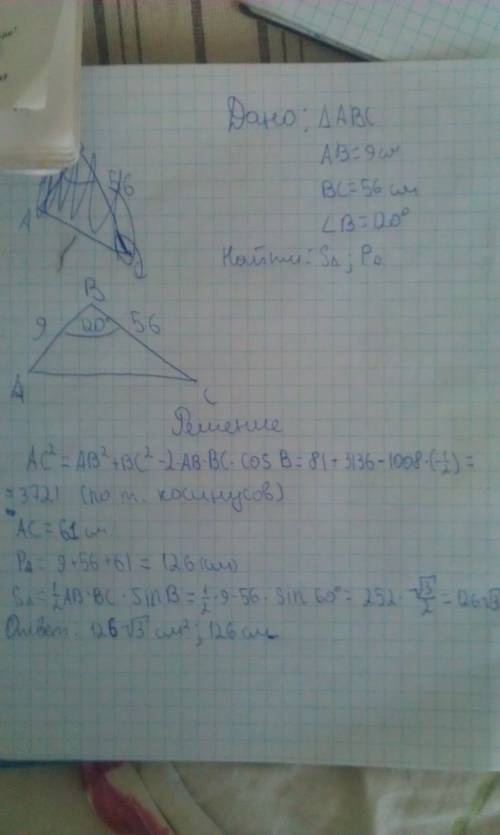 Дано: ΔABC
AB=9см
BC=56 см
∠B=120°
Найти: SΔ; PΔ
56
A
B
9 120° 56
A
C
Решение
AC²=AB²+BC²-2·AB·BC·cos B=81+3136-1008·(-½)=
=3721 (по т. косинусов)
AC=61 см
PΔ=9+56+61=126(см)
SΔ=½AB·BC·sinB=½·9·56·sin 60°=252·√3/2=126√3
Ответ: 126√3 см²; 126 см